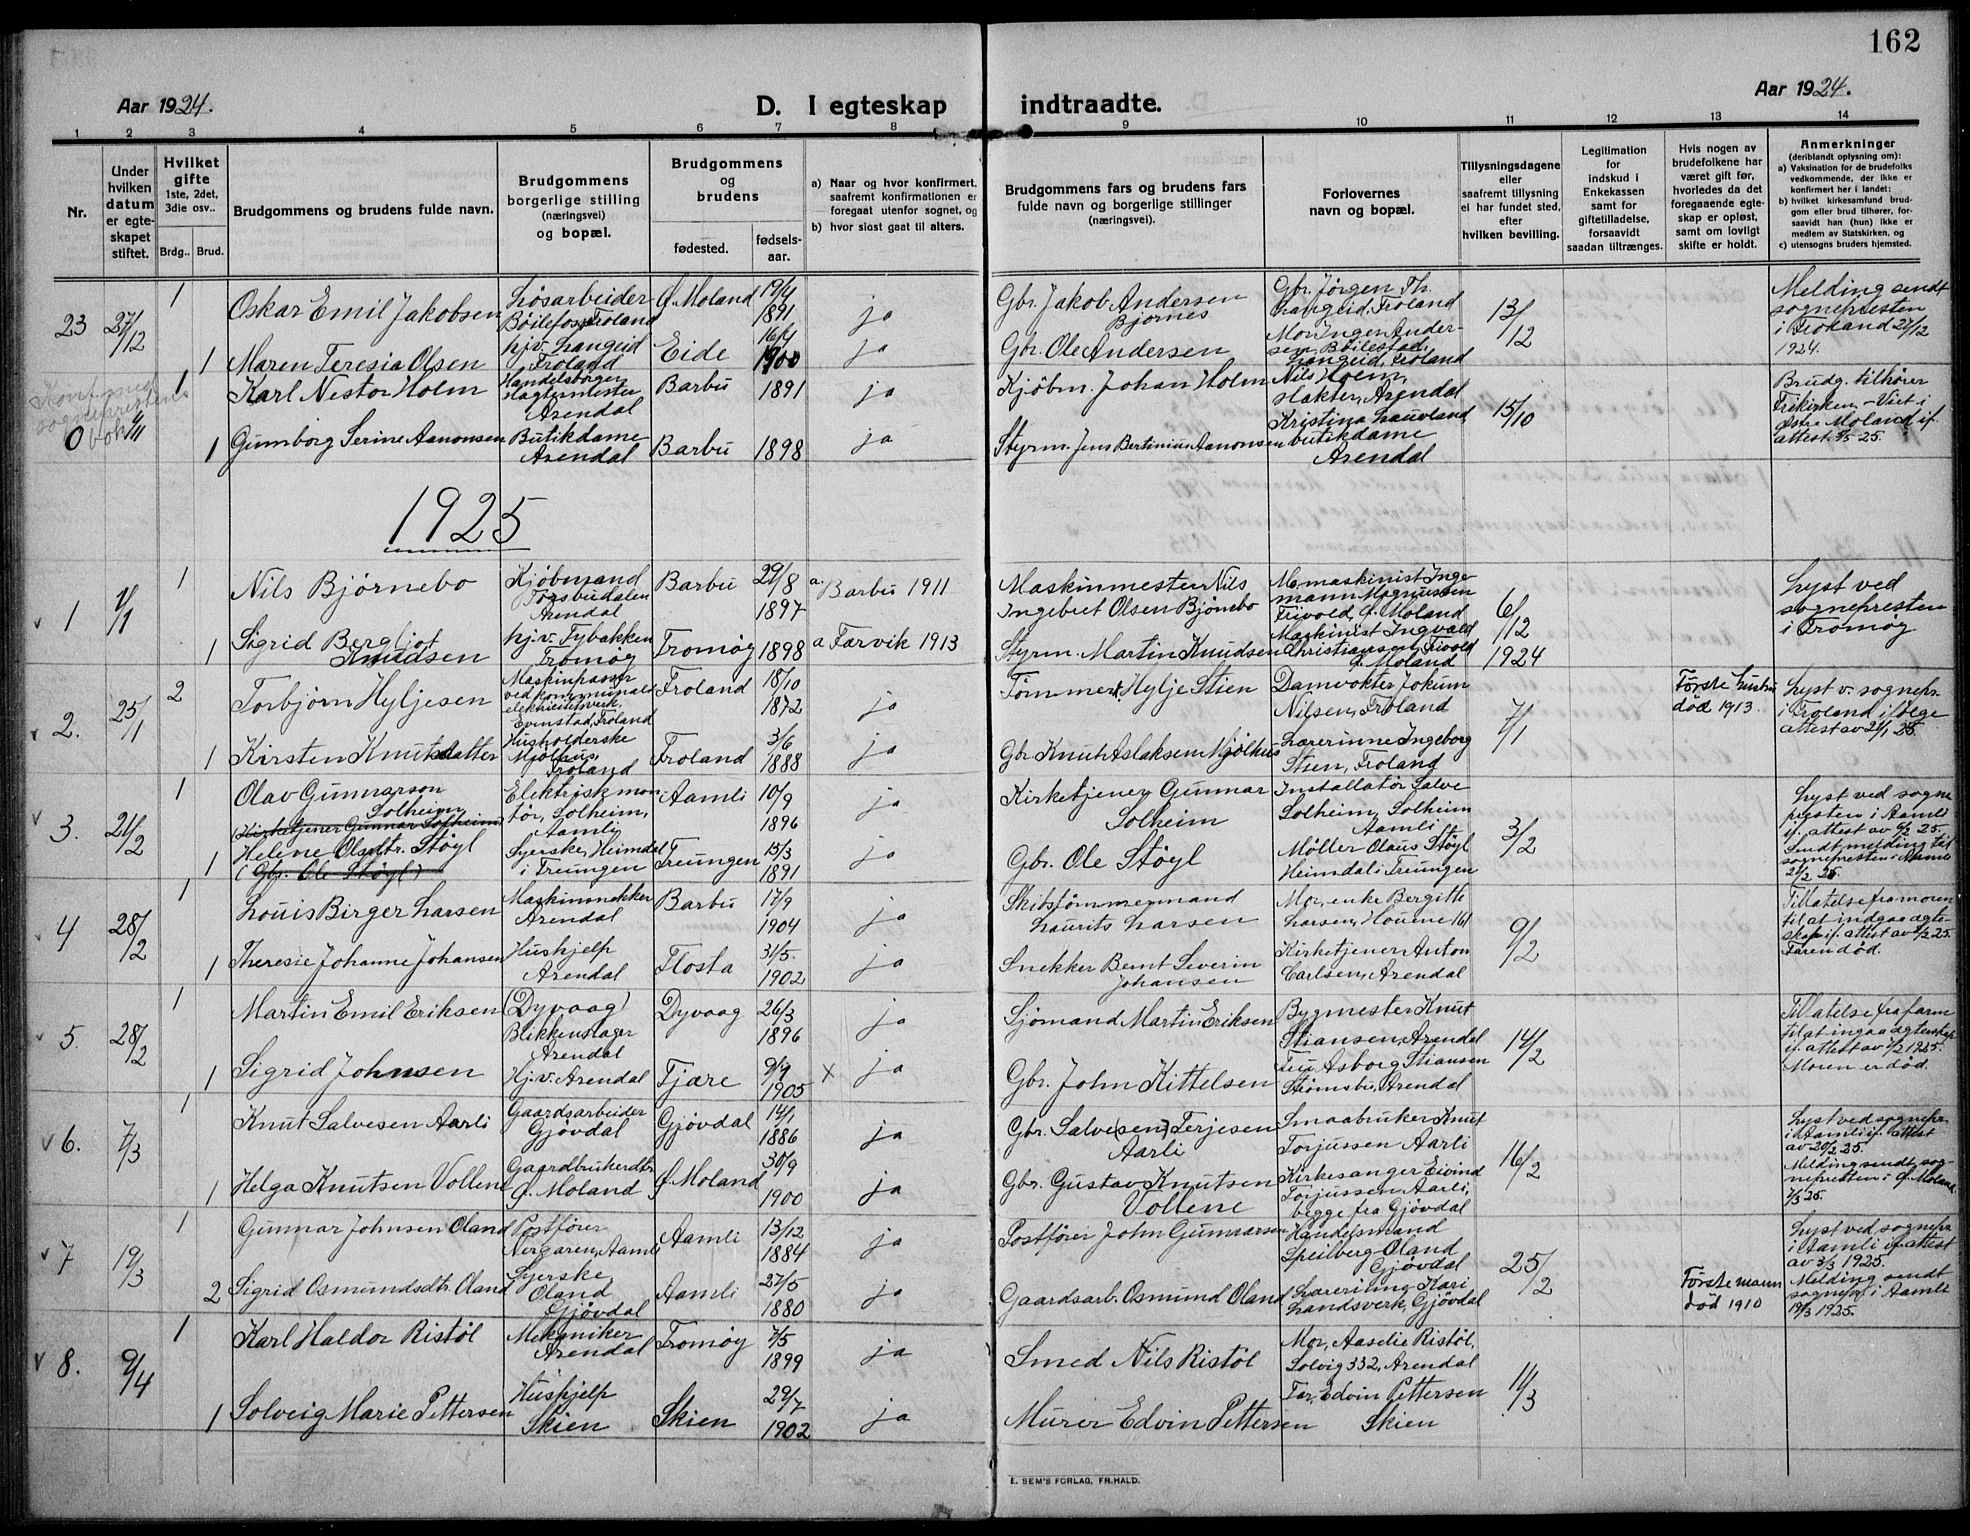 162
Aar 1924.
D. I egteskap indtraadte.
Aar 1924.
1 2 3 4 5 6 7 8 9 10 11 12 13 14
Nr.
Under hvilken datum er egte-skapet stiftet.
Hvilket gifte
1ste, 2det, 3die osv..
Brdg.. Brud.
Brudgommens og brudens fulde navn.
Brudgommens borgerlige stilling (næringsvei) og bopæl.
Brudgommens og brudens
fødested.
fødsels-aar.
a) Naar og hvor konfirmert, saafremt konfirmationen er foregaat utenfor sognet, og
b) hvor sidst gaat til alters.
Brudgommens fars og brudens fars fulde navn og borgerlige stillinger (næringsvei).
Forlovernes navn og bopæl.
Tillysningsdagene eller saafremt tillysning ei har fundet sted, efter hvilken bevilling.
Legitimation for indskud i Enkekassen samt for giftetilladelse, forsaavidt saadan tiltrænges.
Hvis nogen av brudefolkene har været gift før, hvorledes da det foregaaende egte-skap er opløst, samt om lovligt skifte er holdt.
Anmerkninger
(deriblandt oplysning om):
a) Vaksination for de brudefolks vedkommende, der ikke er konfirmert her i landet:
b) hvilket kirkesamfund brud-gom eller brud tilhører, for-saavidt han (hun) ikke er medlem av Statskirken, og
c) utensogns bruders hjemsted.
23 27/12 1 Oskar Emil Jakobsen
Løsarbeider
Bøilefoss, Froland
Ø. Moland 19/4 1891 ja
Gbr. Jakob Andersen
Bjornes
Gbr. Jörgen Th.
Langeid, Froland
13/12
Melding sendt
sognepresten
i Froland 27/12
1924.
1 Maren Teresia Olsen
hjv. Langeid
Froland
Eide 16/4 1900 ja
Gbr. Ole Andersen
Mor Inger Ander-
sen, Bøilestad,
Langeid, Froland
Konf. med
sogneprestens
bok
0
1 Karl Nestor Holm
Handelsborger,
slagtermester
Arendal
Barbu 1891 ja
Kjøbm. Johan Holm
Nils Holm,
slakter, Arendal
15/10
Brudg. tilhører
Frikirken. - Viet i
Østre Moland if.
attest 4/5 25.
1 Gumborg Serine Aanonsen
Butikdame
Arendal
Barbu 1898 ja
Styrm. Jens Bertinius Aanonsen
Kristina Lauvland
butikdame
Arendal
1925
1 1/1 1 Nils Bjørnebo
Kjøbmand
Torsbudalen
Arendal
Barbu 29/8 1897 a. Barbu 1911
Maskinmester Nils
Ingebret Olsen Bjørnebo
M. maskinist Inge
mann Magnussen
Frivold, Ø. Moland
6/12
1924
Lyst ved
sognepresten
i Tromøy
1 Sigrid Bergljot
Knudsen
hj.v. Tybakken
Tromøy
Tromøy 1898 a Færvik 1913
Styrm. Martin Knudsen
Maskinist Ingvald
Christiansen, Frivold
Ø. Moland
2. 25/1 2 Torbjørn Hyljesen
Maskinpasser
ved kommunale
elektricitetsverk,
Evenstad, Froland
Froland 18/10 1872 ja
Tømmerk. Hylje Stien
Damvokter Jokum
Nilsen, Froland
7/1
Første hustru
död 1913.
Lyst v. sognepr.
i Froland ifølge
attest av 21/1 25.
1 Kirsten Knutsdatter
Husholderske
Mjølhus,
Froland
Froland 3/6 1888 ja
Gbr. Knut Aslaksen Mjølhus
Lærerinne Ingeborg
Stien, Froland
3. 21/2 1 Olav Gunnarson
Solheim
(Kirketjener Gunnar Solheim)
Elektriskmon
tør, Solheim,
Aamli
Aamli 10/9 1896 ja
Kirketjener Gunnar
Solheim
Installatör Salve
Solheim, Solheim
Aamli
3/2
Lyst ved sogne
presten i Aamli
if. attest av 6/2 25.
Sendt melding til
sognepresten i Aamli
21/2 25.
1 Helene Olsdtr. Støyl
(Gbr. Ole Støyl)
Syerske, Heimdal
i Treungen
Treungen 15/3 1891 ja
Gbr. Ole Støyl
Møller Olaus Støyl
Heimdal i Treungen
4 28/2 1 Louis Birger Larsen
Maskinsnekker
Arendal
Barbu 17/9 1904 ja
Skibstømmermand
Laurits Larsen
Mor, enke Bergitte
Larsen, Houene 161
9/2
Tillatelse fra moren
til at indgaa egte-
skap if. attest av 9/2 25.
Faren död.
1 Theresie Johanne Johansen
Hushjelp
Arendal
Flosta 31/5. 1902 ja
Snekker Bernt Severin
Johansen
Kirketjener Anton
Carlsen, Arendal
5. 28/2 1 Martin Emil Eriksen
(Dyvaag)
Blikkenslager
Arendal
Dyvaag 26/3 1896 ja
Sjømand Martin Eriksen
Bygmester Knut
Stiansen, Arendal
14/2
Tillatelse fra farm
til at ingaa egteskap
if. attest av 7/2 1925.
Moren er død.
1 Sigrid Johnsen
Hj.v. Arendal
Tjøre 9/9 1905 x ja
Gbr. John Kittelsen
Fru Asborg Stiansen
Strømsbu, Arendal
6. 7/3 1 Knut Salvesen Aarli
Gaardsarbeider
Gjøvdal
Gjøvdal 14/1 1886 ja
Gbr. Salve(sen) Terjesen
Aarli
Smaabruker Knut
Torjussen Aarli
16/2
Lyst ved sognepr.
i Aamli if. attest
av 20/2 25.
Melding sendt sog-
nepresten i Ø. Moland
7/3 25.
1 Helga Knutsen Vollene
Gaardbrukerdtr.
Ø. Moland
Ø. Moland 30/9 1900 ja
Gbr. Gustav Knutsen
Vollene
Kirkesanger Eivind
Torjussen Aarli,
begge fra Gjøvdal
7 19/3 1 Gunnar Johnsen Oland
Postfører
Nergaren, Aamli
Aamli 13/12 1884 ja
Postfører John Gunnarsen
Handelsmand
Speilberg Oland
Gjøvdal
25/2
Lyst ved sognepr.
i Aamli if. attest
av 3/3 1925.
Melding sendt
sognepr. i Aamli
19/3 1925.
2 Sigrid Osmundsdtr. Oland
Syerske
Oland
Gjøvdal
Aamli 27/5 1880 ja
Gaardsarb. Osmund Oland
Lærerinne Kari
Landsverk, Gjøvdal
Første mann
död 1910
8. 9/4 1 Karl Haldor Ristøl
Mekaniker
Arendal
Tromøy 7/5 1899 ja
Smed Nils Ristøl
Mor, Aaselie Ristøl,
Solvig 332, Arendal
11/3
1 Solveig Marie Pettersen
Hushjelp
Skien
Skien 29/7 1902 ja
Murer Edvin Pettersen
Far, Edvin Pettersen
Skien
E. SEM'S FORLAG, FR.HALD.